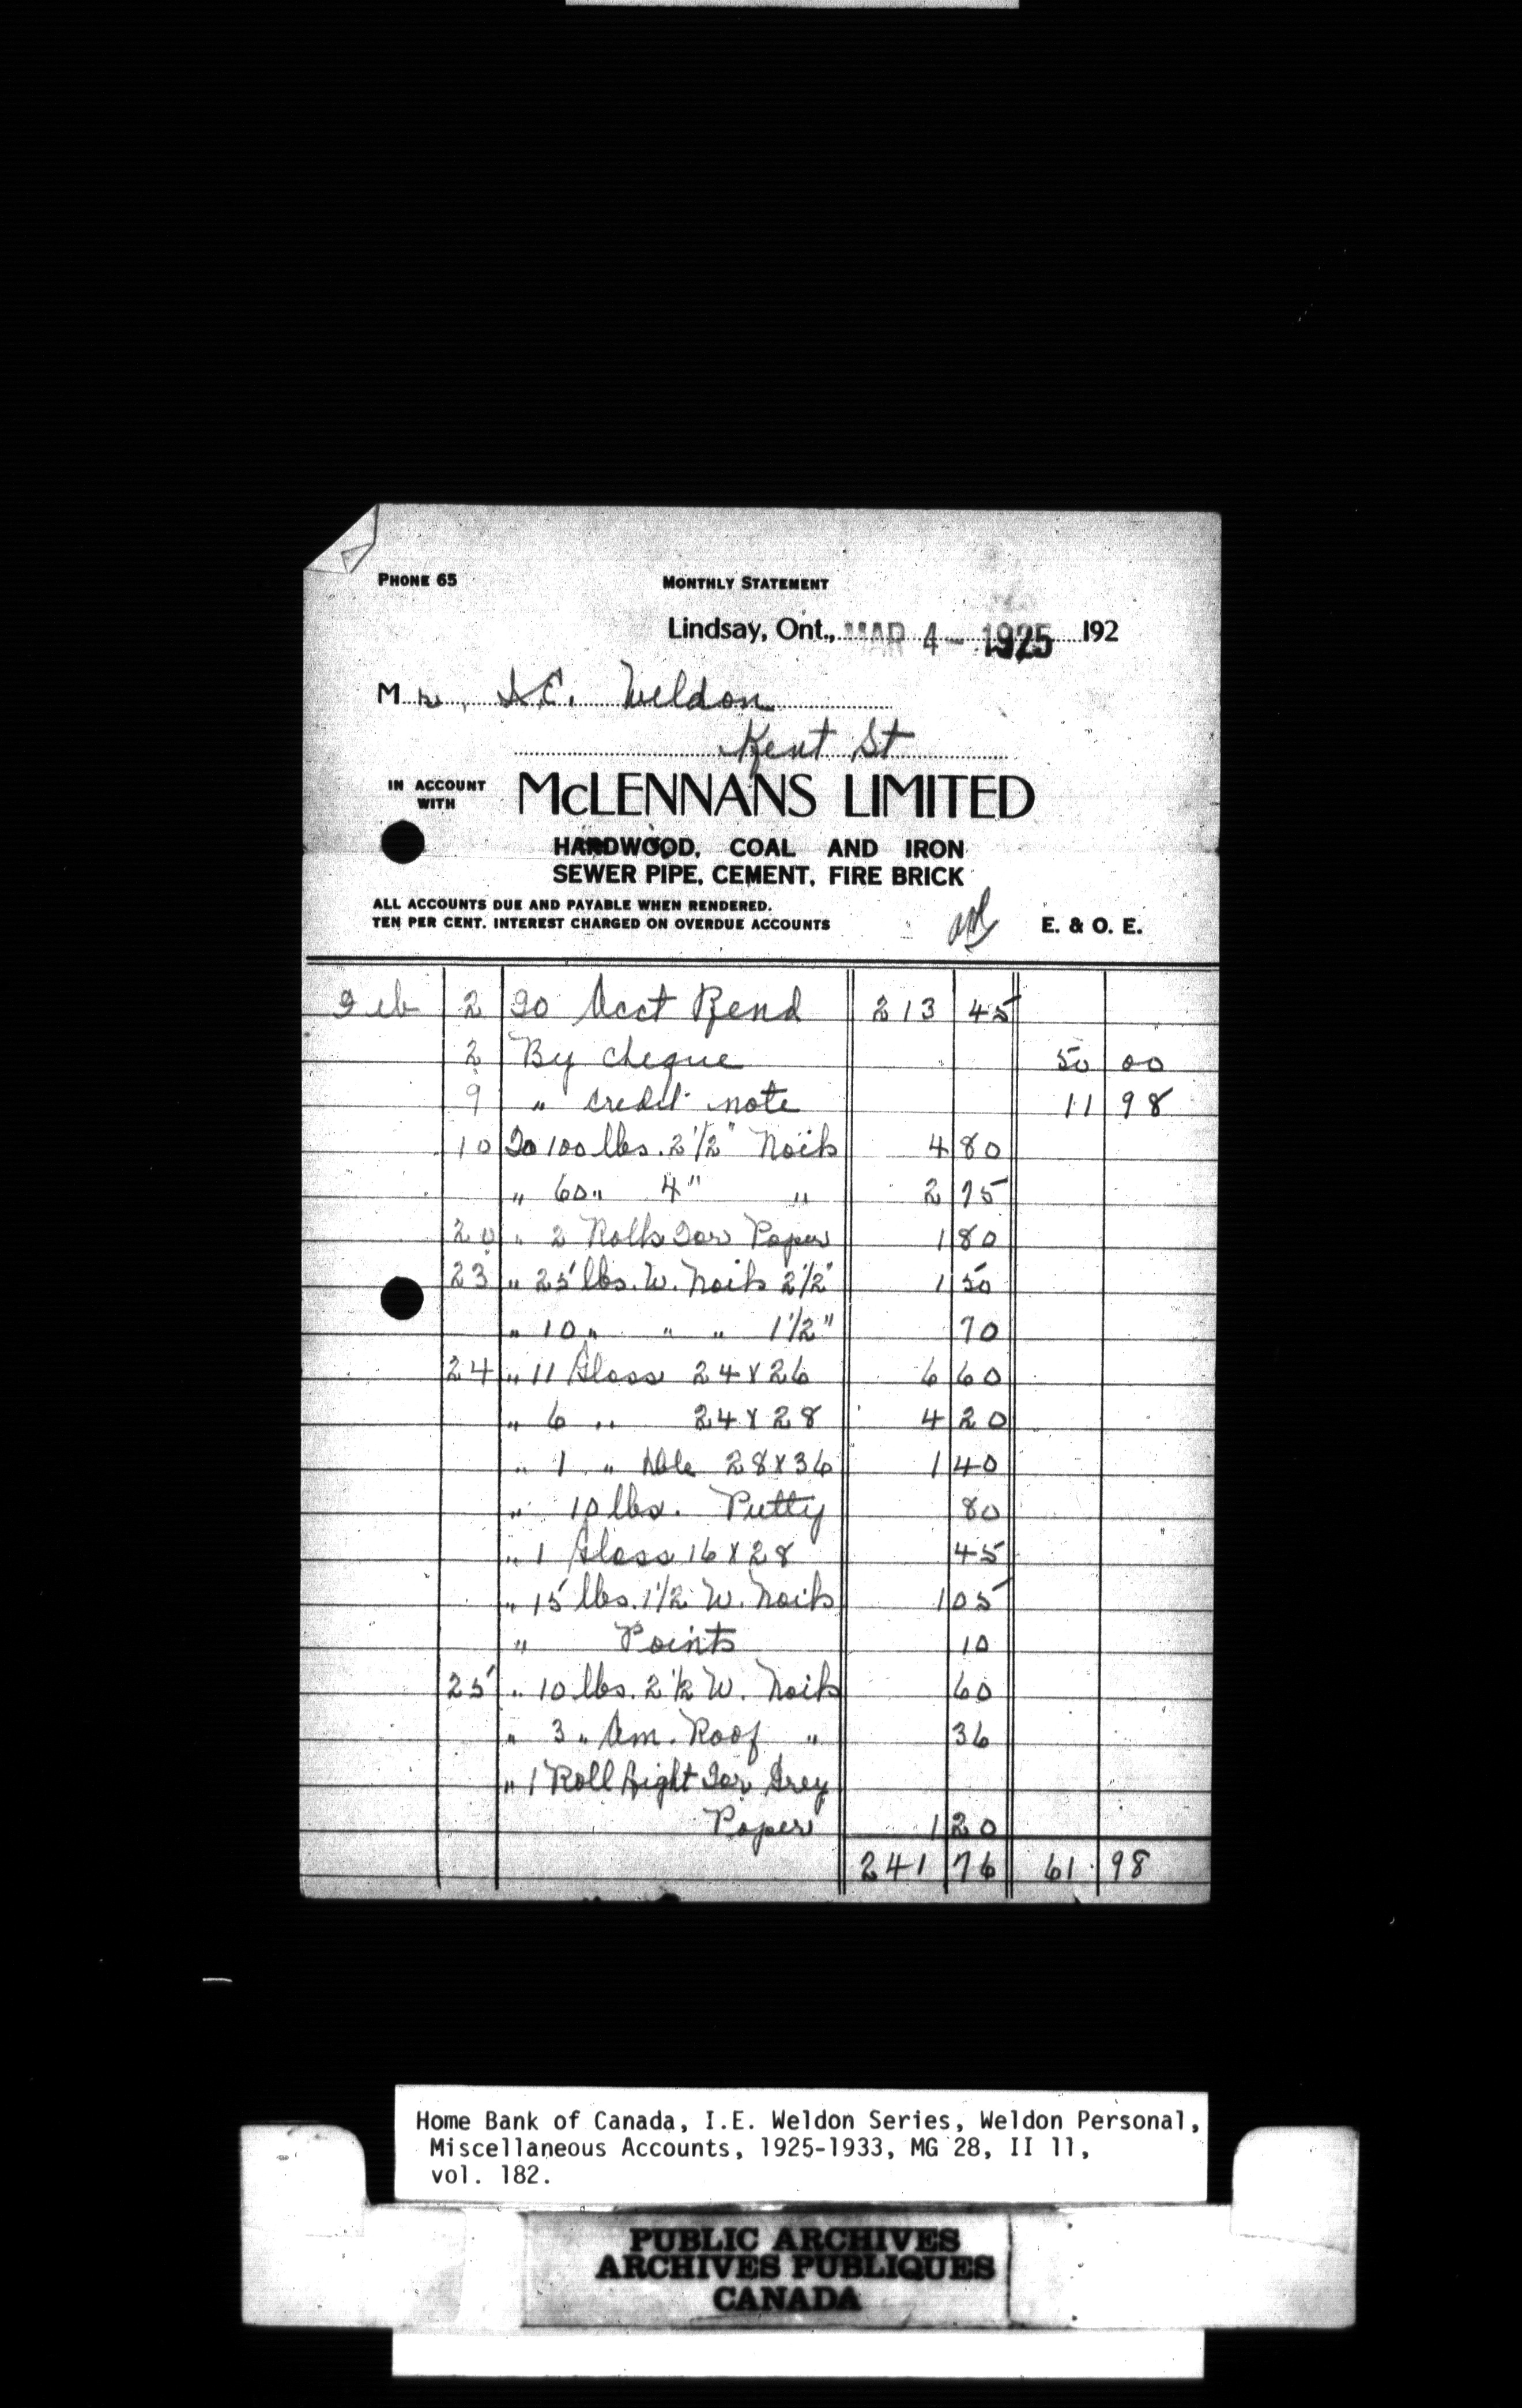 PHONE 65
MONTHLY STATEMENT
Lindsay, Ont., MAR 4 - 1925 192
Mr. I.E. Weldon
Kent St
IN ACCOUNT WITH
McLENNANS LIMITED
HARDWOOD, COAL AND IRON
SEWER PIPE, CEMENT, FIRE BRICK
ALL ACCOUNTS DUE AND PAYABLE WHEN RENDERED.
TEN PER CENT. INTEREST CHARGED ON OVERDUE ACCOUNTS
E. & O. E.
Feb 2 To Acct Rend 213 45
2 By cheque 50 00
9 " credit note 11 98
10 To 100 lbs. 2 1/2" Nails 4 80
" 60 " 4" " 2 75
20 " 2 Rolls Tar Paper 1 80
23 " 25 lbs. W. Nails 2 1/2" 1 50
" 10 " " " 1 1/2" 70
24 " 11 Glass 24 x 26 6 60
" 6 " 24 x 28 4 20
" 1 " Dble 28 x 36 1 40
" 10 lbs. Putty 80
" 1 Glass 16 x 28 45
" 15 lbs. 1 1/2 W. Nails 1 05
" Points 10
25 " 10 lbs. 2 1/2 W. Nails 60
" 3 " Am. Roof " 36
" 1 Roll Light Tar Grey
Paper 1 20
241 76 61 98
Home Bank of Canada, I.E. Weldon Series, Weldon Personal,
Miscellaneous Accounts, 1925-1933, MG 28, II 11,
vol. 182.
PUBLIC ARCHIVES
ARCHIVES PUBLIQUES
CANADA